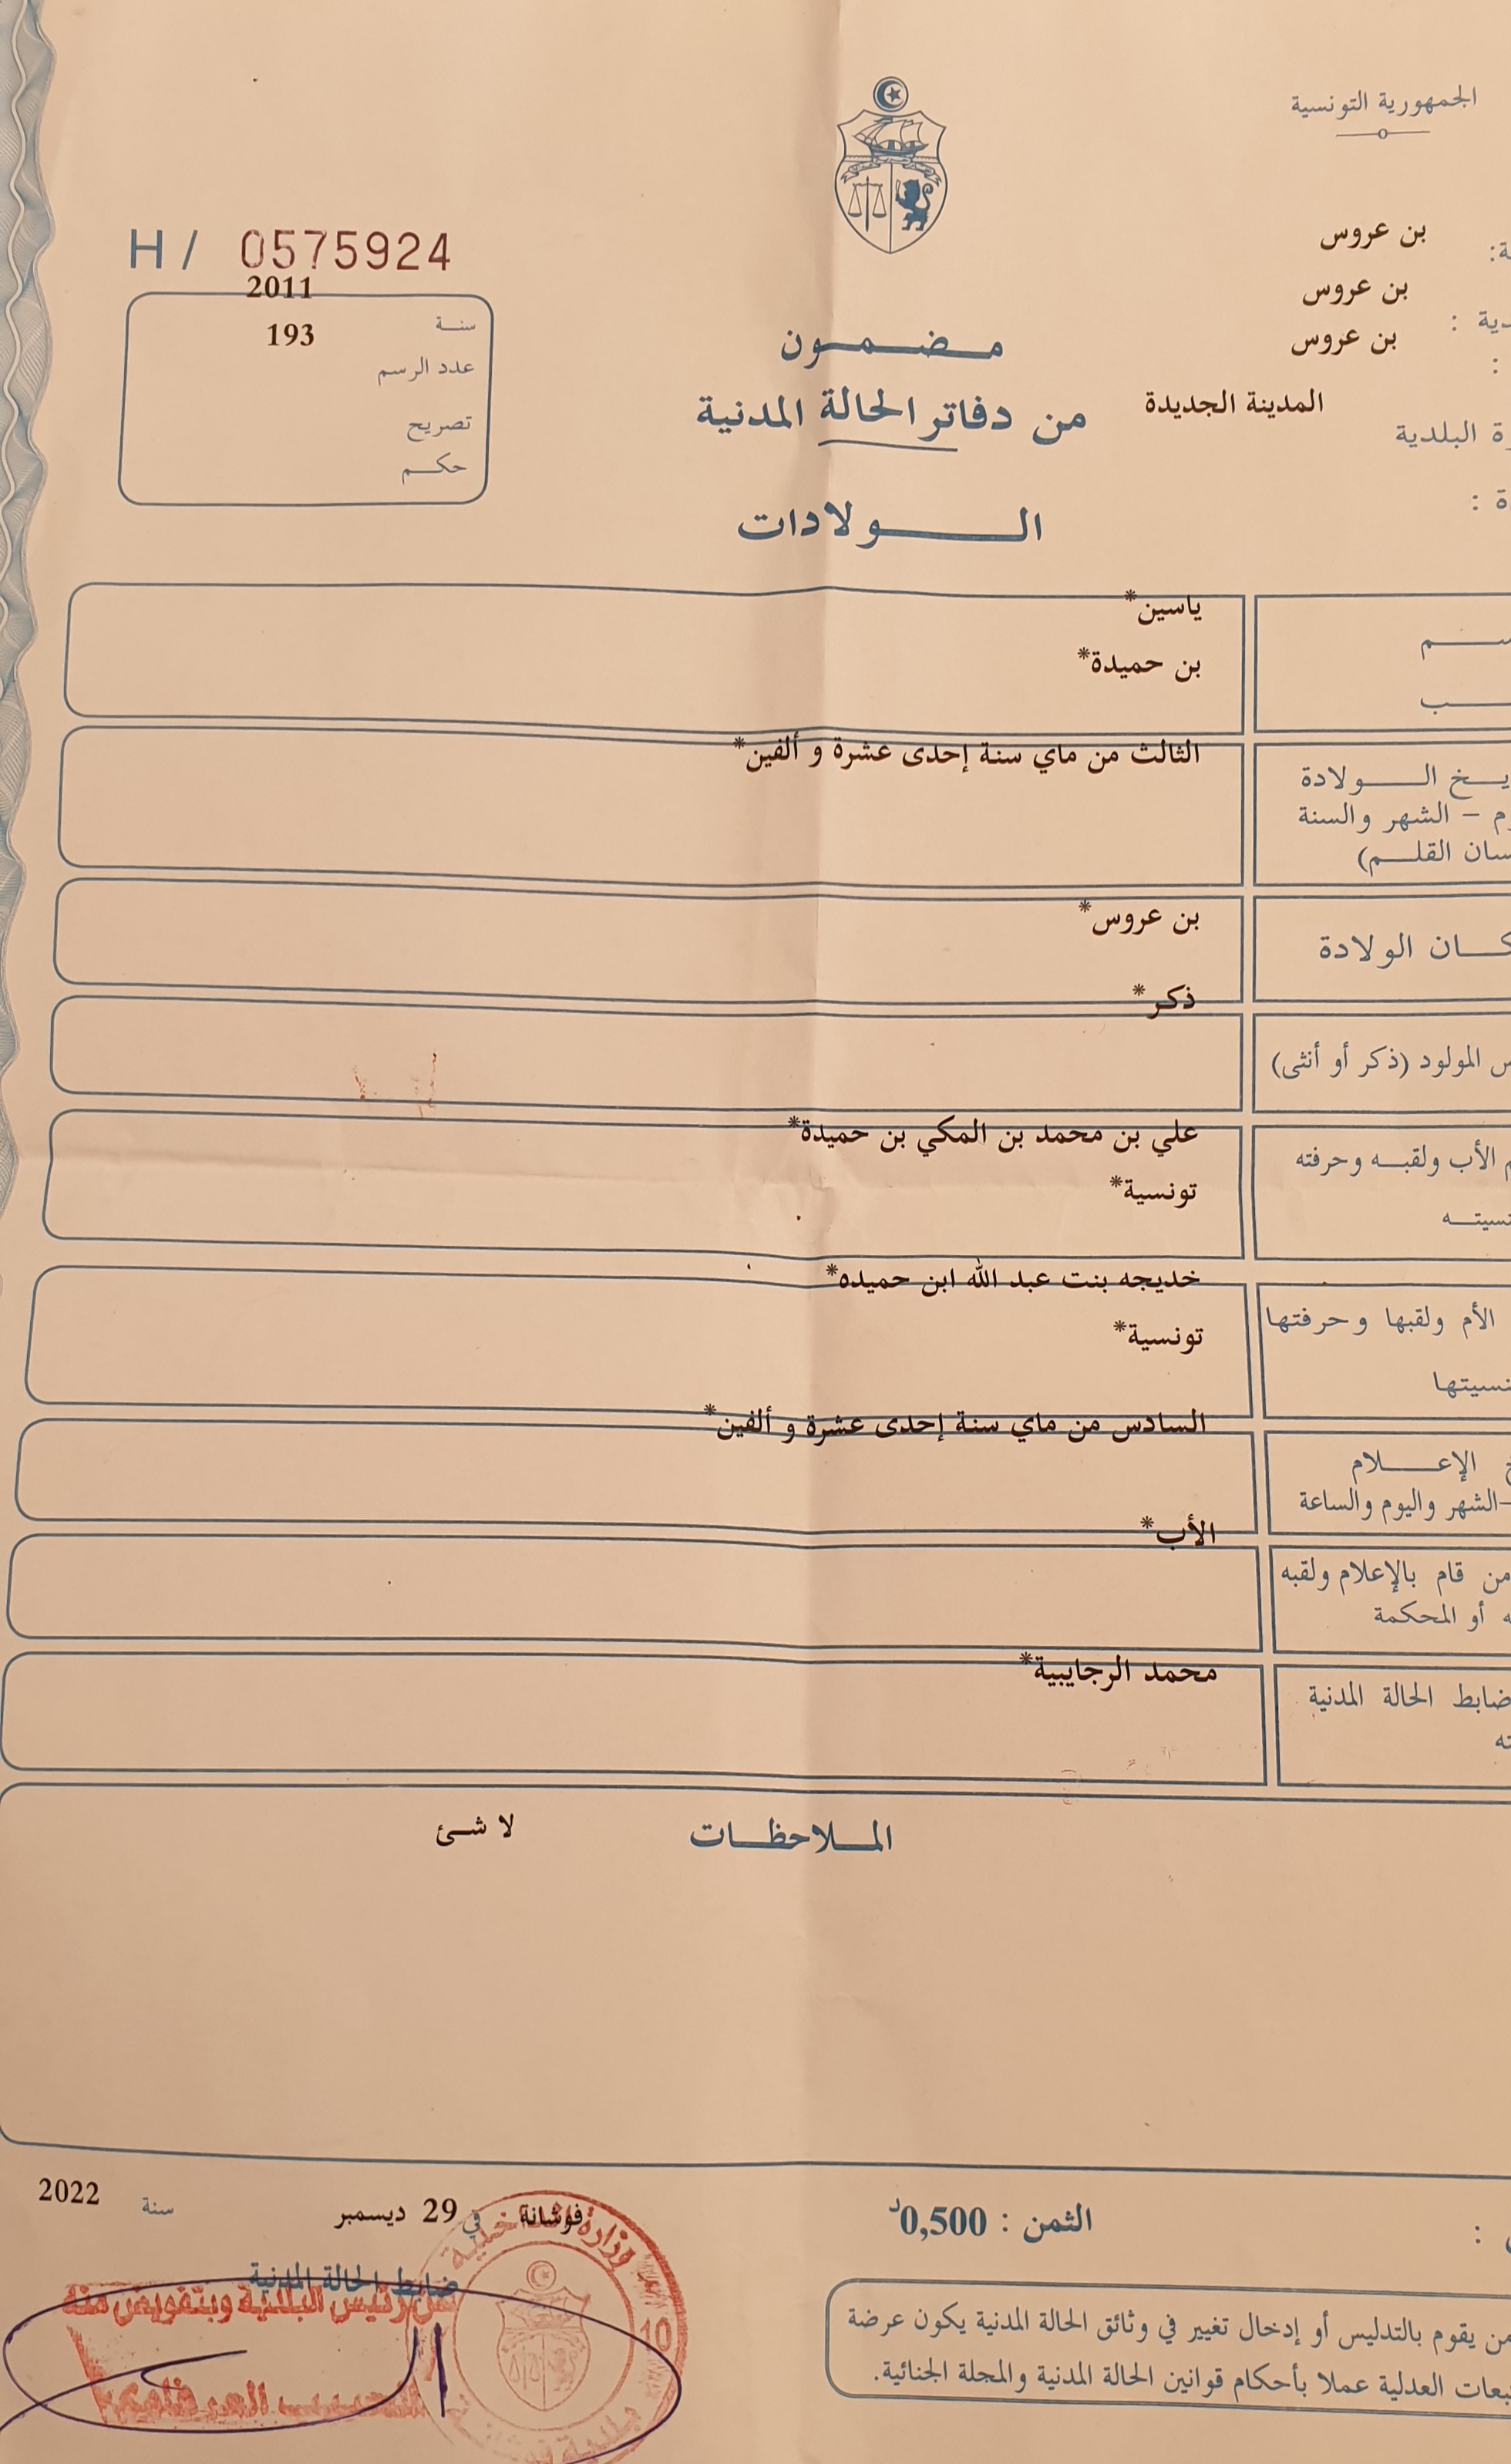 الجمهورية التونسية
بن عروس
بن عروس
بن عروس
المدينة الجديدة
البلدية
H / 0575924
2011
سنة
193
عدد الرسم
تصريح
حكم
مضمون
من دفاتر الحالة المدنية
الولادات
ياسين*
بن حميدة*
الثالث من ماي سنة إحدى عشرة و ألفين*
الولادة
الشهر والسنة
القلم)
بن عروس*
الولادة
ذكر*
المولود (ذكر أو أنثى)
علي بن محمد بن المكي بن حميدة*
الأب ولقبه وحرفته
تونسية*
خديجه بنت عبد الله ابن حميده*
الأم ولقبها وحرفتها
تونسية*
السادس من ماي سنة إحدى عشرة و ألفين*
الإعلام
-الشهر واليوم والساعة
الأب*
من قام بالإعلام ولقبه
أو المحكمة
محمد الرجايبية*
ضابط الحالة المدنية
الملاحظات لا شئ
الثمن : 0,500د
فوشانة في 29 ديسمبر سنة 2022
ضابط الحالة المدنية
عن رئيس البلدية وبتفويض منه
وزارة الداخلية
10
بلدية فوشانة
من يقوم بالتدليس أو إدخال تغيير في وثائق الحالة المدنية يكون عرضة
العدلية عملا بأحكام قوانين الحالة المدنية والمجلة الجنائية.